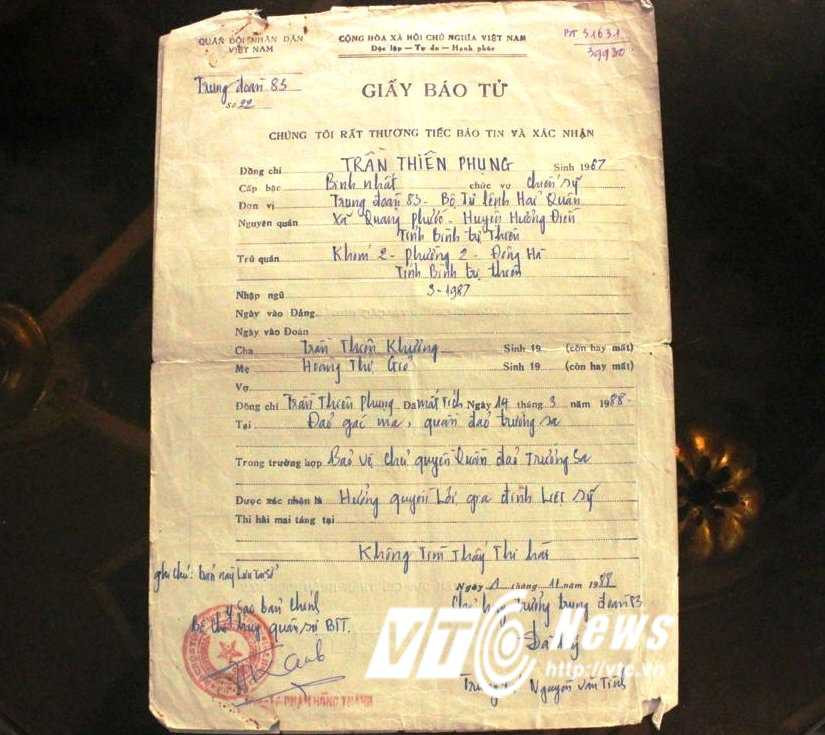 QUÂN ĐỘI NHÂN DÂN
VIỆT NAM
CỘNG HÒA XÃ HỘI CHỦ NGHĨA VIỆT NAM
Độc lập — Tự do — Hạnh phúc
39930
Trung đoàn 83
Số 22
GIẤY BÁO TỬ
CHÚNG TÔI RẤT THƯƠNG TIẾC BÁO TIN VÀ XÁC NHẬN
Đồng chí TRẦN THIÊN PHỤNG Sinh 1967
Cấp bậc Binh nhất chức vụ chiến sỹ
Đơn vị Trung đoàn 83 - Bộ Tư lệnh Hải Quân
Nguyên quán Xã Quảng Phước - Huyện Hương Điền
Tỉnh Bình trị Thiên
Trú quán Khóm 2 - phường 2 - Đông Hà
Tỉnh Bình trị thiên
Nhập ngũ 3-1987
Ngày vào Đảng
Ngày vào Đoàn
Cha Trần Thiên Khưỡng Sinh 19 (còn hay mất)
Mẹ Hoàng Thị Gio Sinh 19 (còn hay mất)
Vợ
Đồng chí Trần Thiên Phụng Đã mất tích Ngày 14 tháng 3 năm 1988-
Tại Đảo gác ma, quần đảo trường sa
Trong trường hợp Bảo vệ chủ quyền Quần đảo Trường Sa
Được xác nhận là Hưởng quyền Lợi gia đình Liệt sỹ
Thi hài mai táng tại
Không Tìm Thấy Thi hài
ghi chú: bản này Lưu
Ngày 1 tháng 11 năm 1988
Sao bản chính
Chỉ huy trưởng trung đoàn 83
huy quân sự BTT.
Đã ký
PHẠM HỒNG THANH
Nguyễn Văn Tình
VTC News
http://vtc.vn